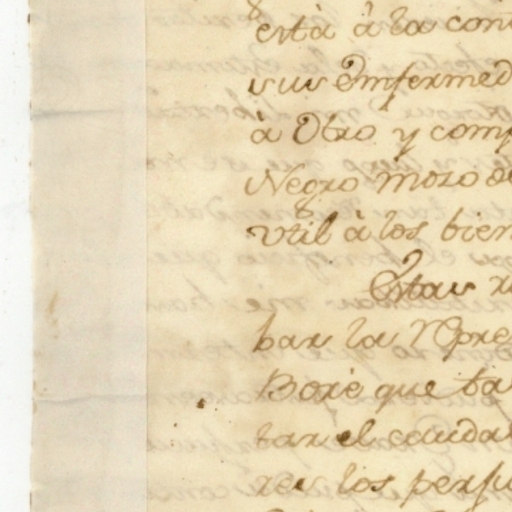 està à la con
sus Enfermed
à Otro y comp
Negro mozo de
vtil à los bien
Estas r
bar la Repre
Borè que ta
tar el caudal
res los perju